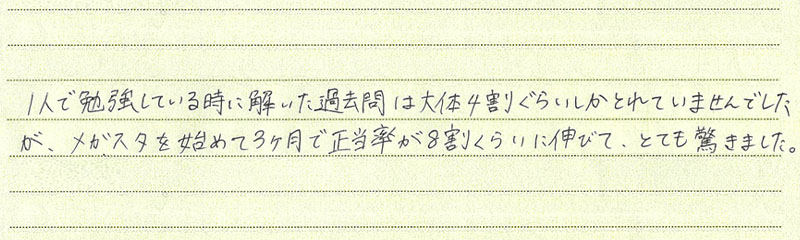 1人で勉強している時に解いた過去問は大体4割ぐらいしかとれていませんでした
が、メガスタを始めて3ヶ月で正当率が8割くらいに伸びて、とても驚きました。